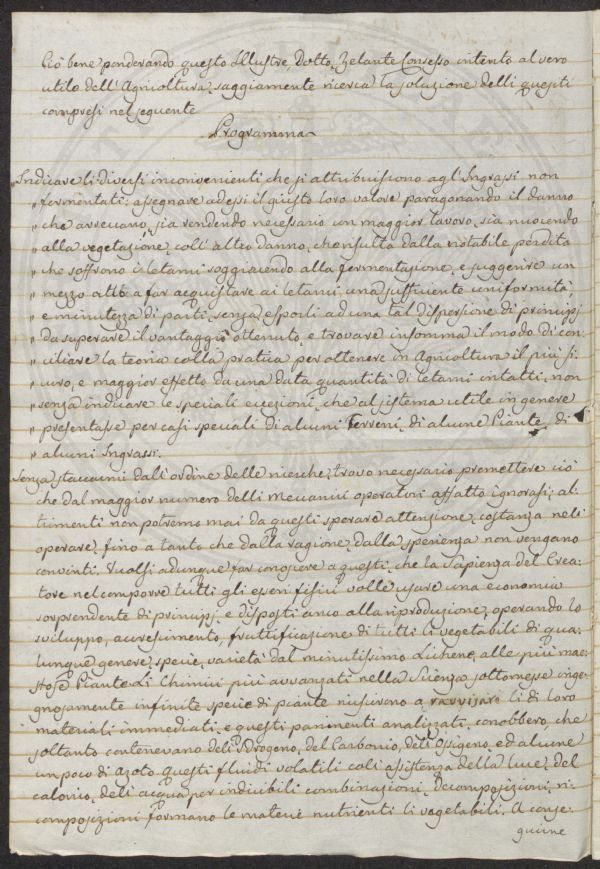 Ciò bene ponderando questo Illustre, Dotto, Zelante Consesso intento al vero
utile dell'Agricoltura, saggiamente ricerca la soluzione delli quesiti
compresi nel seguente
Programma
„Indicare li diversi inconvenienti che si attribuiscono agl'Ingrassi non
„ fermentati: assegnare ad essi il giusto loro valore paragonando il danno
„ che arrecano, sia rendendo necessario un maggior lavoro, sia nuocendo
„ alla vegetazione, coll'altro danno, che risulta dalla notabile perdita
„ che soffrono i letami soggiacendo alla fermentazione, e suggerire un
„ mezzo atto a far acquistare ai letami una sufficiente uniformità,
„ e minutezza di parti, senza esporli ad una tal dispersione di principj
„ da superare il vantaggio ottenuto, e trovare insomma il modo di con
„ ciliare la teoria colla pratica per ottenere in Agricoltura il più si
„ curo, e maggior effetto da una data quantità di letami intatti, non
„ senza indicare le speciali eccezioni, che al sistema utile in genere
„ presentasse per casi speciali di alcuni Terreni, di alcune Piante, di
„ alcuni Ingrassi.
Senza staccarmi dall'ordine delle ricerche, trovo necessario premettere ciò
che dal maggior numero delli Meccanici operatori affatto ignorasi; al-
trimenti non potremo mai da questi sperare attenzione, costanza nell'
operare, fino a tanto che dalla ragione, dalla sperienza non vengano
convinti. Vuolsi adunque far conoscere a questi, che la Sapienza del Crea-
tore nel comporre tutti gli esseri fisici volle usare una economia
sorprendente di principj, e disposti anco alla riproduzione, operando lo
sviluppo, accrescimento, fruttificazione di tutti li vegetabili di qua-
lunque genere, specie, varietà dal minutissimo Lichene, alle più mae-
stose Piante. Li Chimici più avvanzati nella Scienza sottomesse inge-
gnosamente infinite specie di piante riuscirono a ravvisare li di loro
materiali immediati, e questi parimenti analizzati, conobbero, che
soltanto contenevano dell'Idrogeno, del Carbonio, dell'Ossigeno, ed alcune
un poco di Azoto. Questi fluidi volatili coll'assistenza della luce, del
calorico, dell'acqua per indicibili combinazioni, decomposizioni, ri-
composizioni formano le materie nutrienti li vegetabili. A conse-
guirne